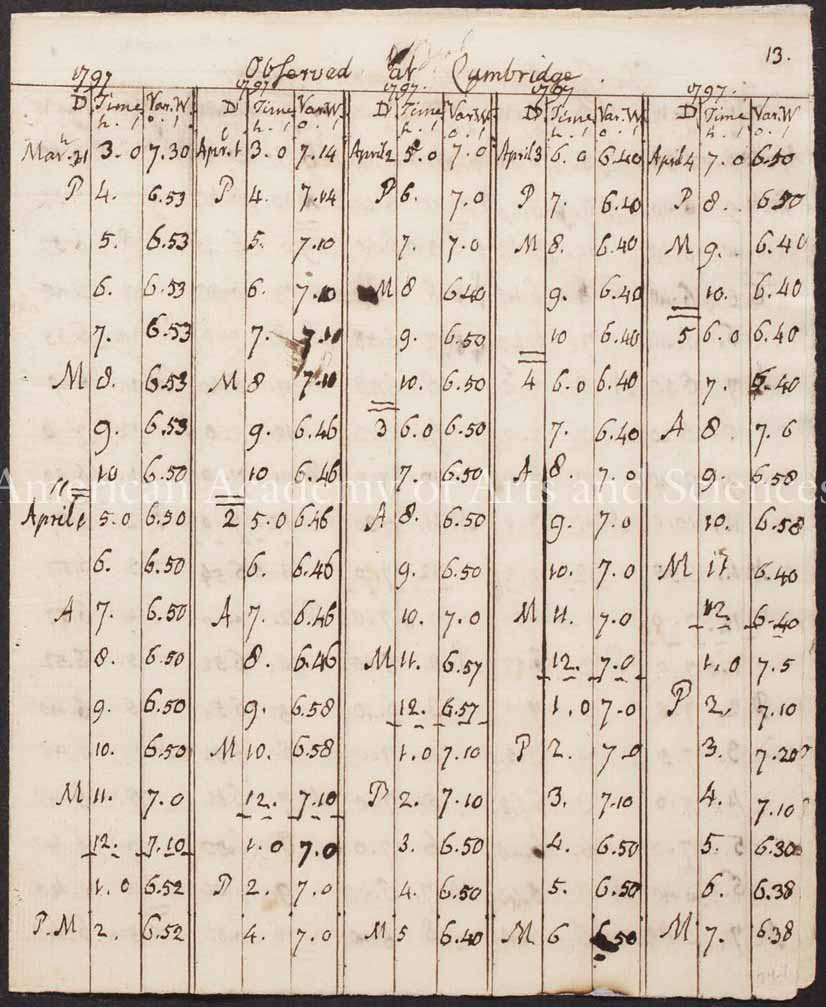 13.
Observed at Cambridge
1797 1797 1797. 1797 1797.
D Time Var.W. D Time Var.W. D Time Var.W. D Time Var.W. D Time Var.W
h. / o. / h. / o. / h. / o. / h. / o. / h. / o. /
Mar. 31 3.0 7.30 Apr. 1 3.0 7.14 April 2 5.0 7.0 April 3 6.0 6.40 April 4 7.0 6.50
P 4. 6.53 P 4. 7.14 P 6. 7.0 P 7. 6.40 P 8. 6.50
5. 6.53 5. 7.10 7. 7.0 M 8. 6.40 M 9. 6.40
6. 6.53 6. 7.10 M 8 6.40 9. 6.40 10. 6.40
7. 6.53 7. 7.10 9. 6.50 10 6.40 5 6.0 6.40
M 8. 6.53 M 8 7.10 10. 6.50 4 6.0 6.40 7. 6.40
9. 6.53 9. 6.46 3 6.0 6.50 7. 6.40 A 8. 7.6
10 6.50 10 6.46 7. 6.50 A 8. 7.0 9. 6.58
American Academy of Arts and Sciences
April 1 5.0 6.50 2 5.0 6.46 A 8. 6.50 9. 7.0 10. 6.58
6. 6.50 6. 6.46 9. 6.50 10. 7.0 M 11. 6.40
A 7. 6.50 A 7. 6.46 10. 7.0 M 11. 7.0 12. 6.40
8. 6.50 8. 6.46 M 11. 6.57 12. 7.0 1.0 7.5
9. 6.50 9. 6.58 12. 6.57 1.0 7.0 P 2. 7.10
10. 6.50 M 10. 6.58 1.0 7.10 P 2. 7.0 3. 7.20
M 11. 7.0 12. 7.10 P 2. 7.10 3. 7.10 4. 7.10
12. 7.10 1.0 7.0 3. 6.50 4. 6.50 5. 6.30
1.0 6.52 P 2. 7.0 4. 6.50 5. 6.50 6. 6.38
P.M 2. 6.52 4. 7.0 M 5 6.40 M 6 6.50 M 7. 6.38